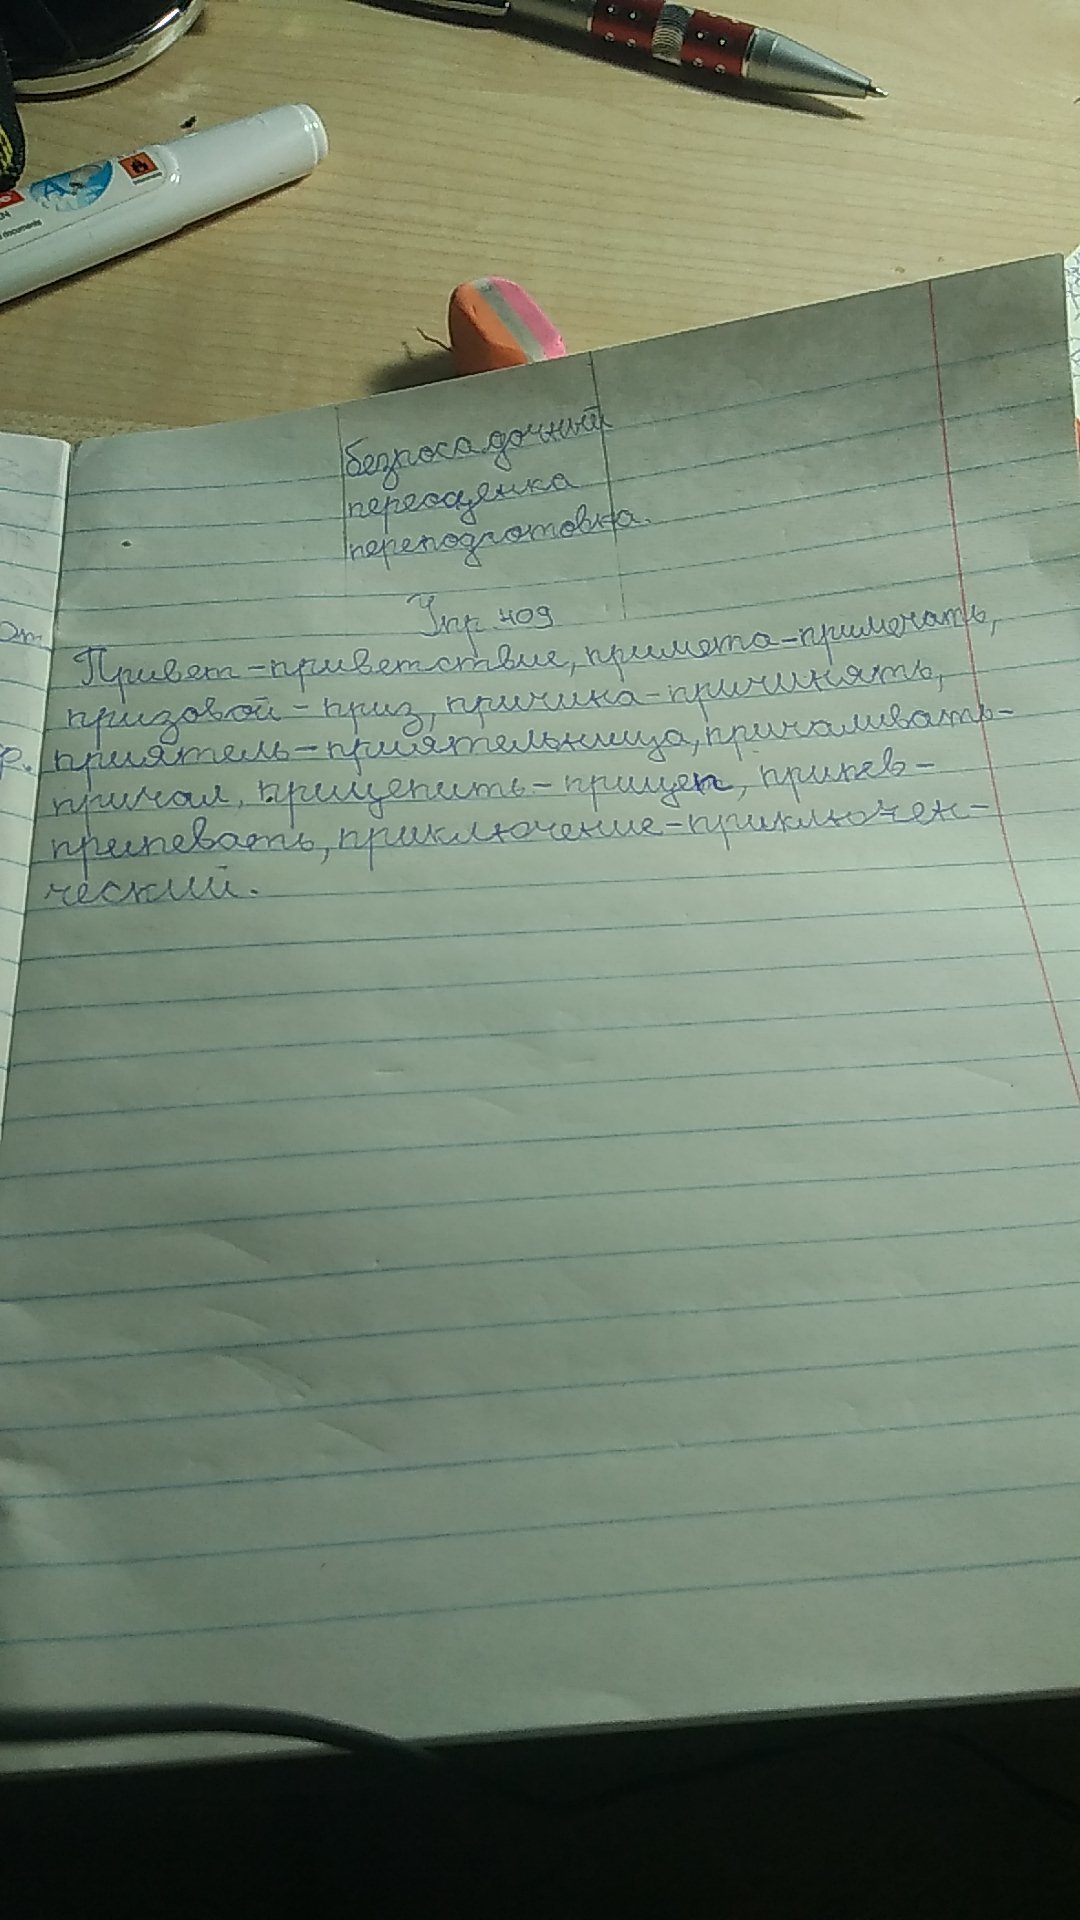 безпосадочный
переоценка
переподготовка.
Упр. 409
Привет-приветствие, примета-примечать,
призовой-приз, причина-причинять,
приятель-приятельница, причаливать-
причал, прицепить-прицеп, припев-
припевать, приключение-приключен-
ческий.
documents